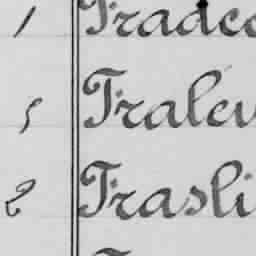 1 Tradec
5 Tralev
2 Trasli